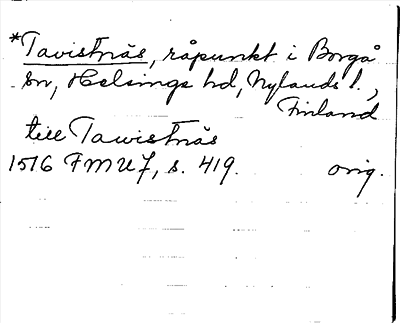 *Tavistnäs, råpunkt i Borgå
sn, Helsinge hd, Nylands l.,
Finland
till Tawistnäs
1516 FMU 7, s. 419. orig.